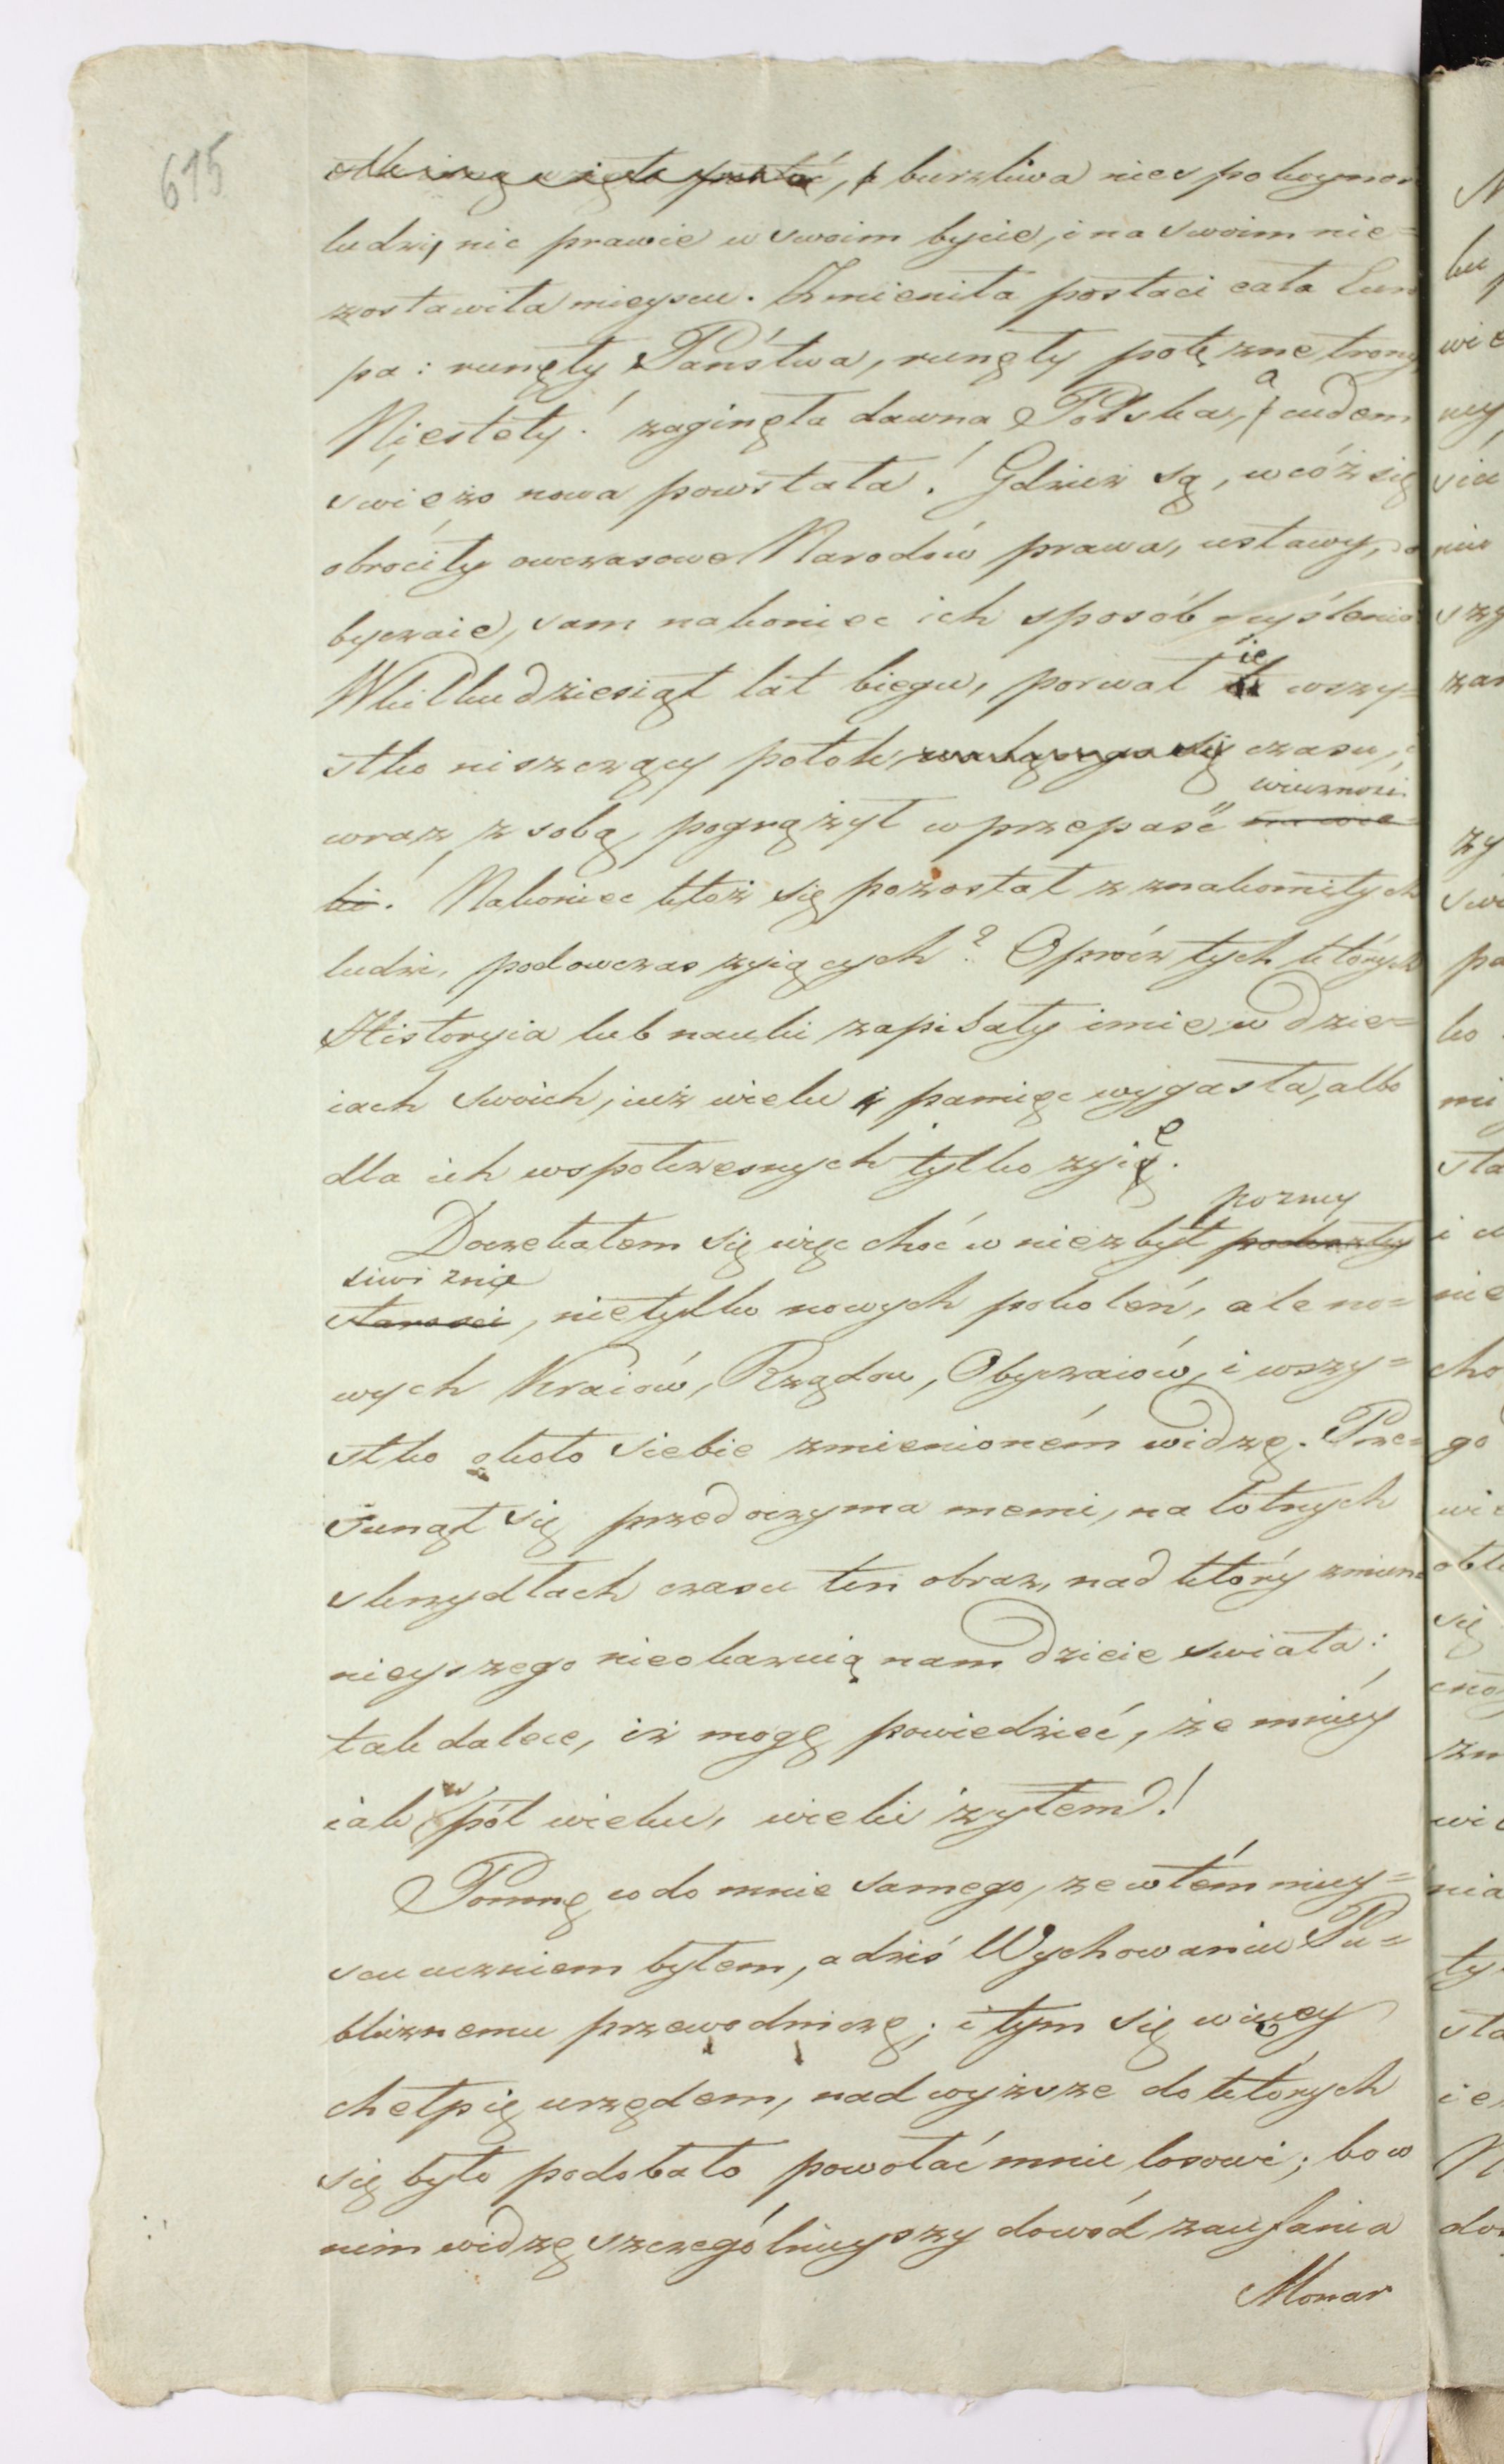 615
burzliwa niespokoynoś
ludzi, nic prawie w swoim bycie, i na swoim nie=
zostawiła mieyscu. Zmieniła postaci cała Euro
pa: runęły Państwa, runęły potężne trony
Niestety! zaginęła dawna Polska, a cudem
swieżo nowa powstała! Gdzież są, w cóż się
obrociły owczasowe Narodów prawa, ustawy, o
byczaie, sam nakoniec ich sposób myślenia
W kilkudziesiąt lat biegu, porwał ie wszy=
stko niszczący potok czasu, i
wraz z sobą pogrążył w przepaść wieczności
. Nakoniec któż się pozostał z znakomitych
ludzi, podowczas zyiących? Oprócz tych których
Historyia lub nauki zapisały imie w dzie=
iach swoich, iuż wielu pamięc wygasła, albo
dla ich wspołczesnych tylko zyie.
Doczekałem się więc choć w niezbyt pozney
siwiznie, nietylko nowych pokoleń, ale no=
wych Kraiów, Rządow, Obyczaiów, i wszy=
stko około siebie zmienioném widzę. Prze=
sunął się przed oczyma memi, na lotnych
skrzydłach czasu ten obraz, nad który zmien
nieyszego nieokazuią nam dzieie swiata:
tak dalece, iż mogę powiedzieć, że mniéy
iak w pół wieku, wieki żyłem!
Pomnę co do mnie samego, ze w tém miey=
scu uczniem byłem, a dziś Wychowaniu Pu=
blicznemu przewodniczę; i tym się więcey
chełpię urzędem, nad wyższe do których
się było podobało powołać mnie losowi; bo w
nim widzę szczególnieyszy dowód zaufania
Monar